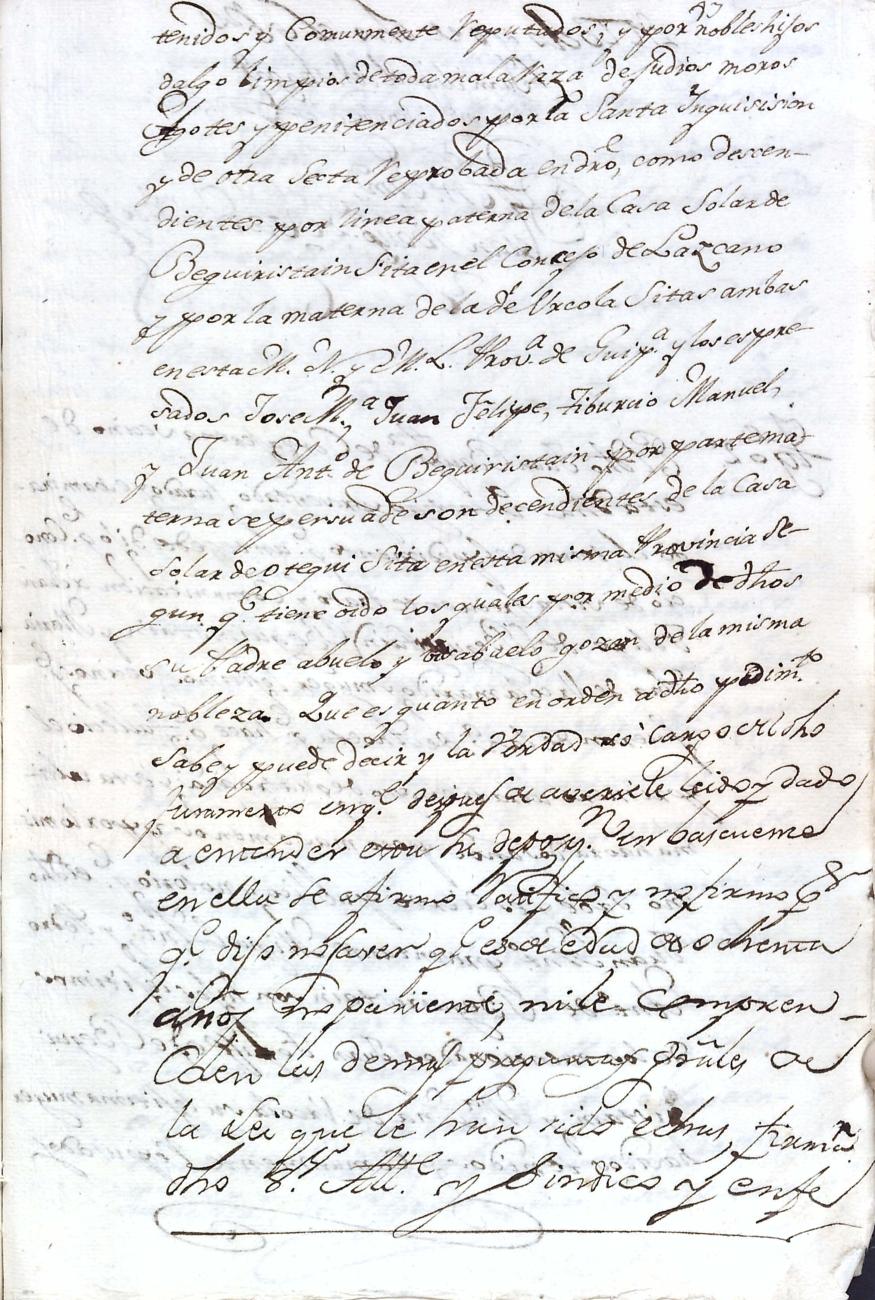 tenidos y Comunmente Reputados; y por nobles hijos
dalgo limpios de toda mala Raza de Judios moros
Agotes y penitenciados por la Santa Inquisision
y de otra Secta Reprobada en dro, como descen-
dientes por linea paterna de la Casa Solar de
Beguiristain Sita en el Concejo de Lazcano
y por la materna de la de Urcola Sitas ambas
en esta M. N. y M. L. Prov.a de Guip.a y los espre-
sados Jose M.a Juan Felipe, Tiburcio Manuel,
y Juan Ant.o de Beguiristain por parte ma-
terna se persuade son decendientes de la Casa
Solar de Otegui Sita en esta misma Provincia se-
gun q.e tiene oido los quales por medio de dhos
su Padre abuelo y bisabuelo gozan de la misma
nobleza. Que es quanto en orden a dho pedim.to
sabe y puede decir y la Verdad so cargo del dho
juramento en q.e despues de averiele leido y dado
a entender esta su deposi.n en bascuence
en ella se afirmo Ratifico y no firmo p.r
q.e dijo no saver q.e es de edad de ochenta
años no pariente, ni le compren-
den las demas preguntas grales de
la Lei que le han sido echas, firma.n
dho S.r All.e y Sindico y enfe